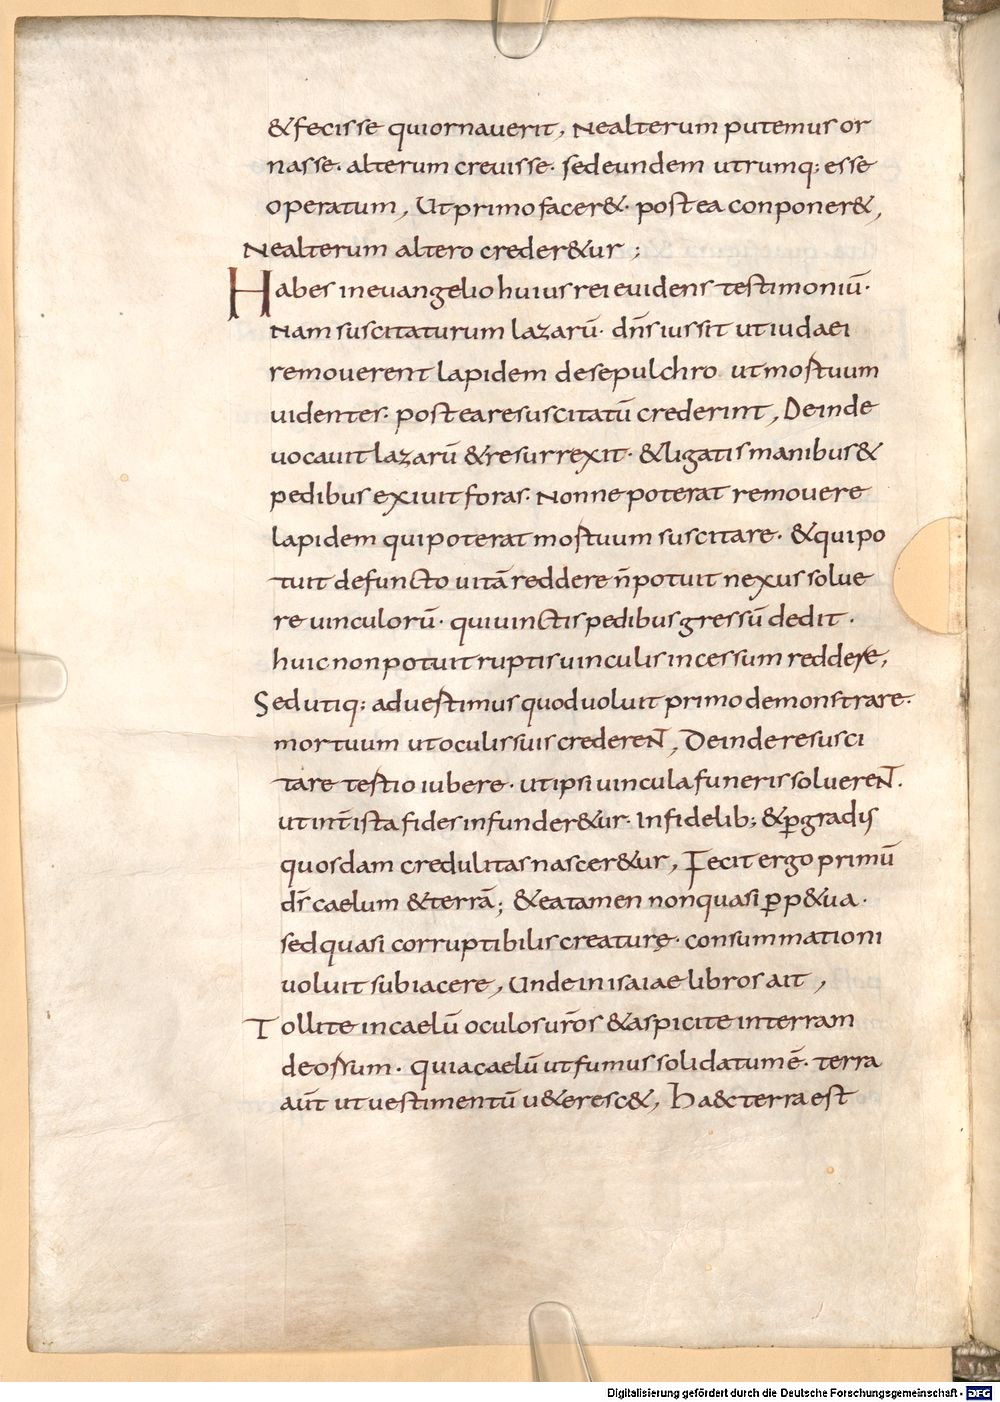 &fecisse quiornauerit, Nealterum putemus or
nasse · alterum creuisse · sedeundem utrumq; esse
operatum, Ut primo facer& · postea conponer&,
Nealterum altero creder&ur ;
Habes ineuangelio huius rei euidens testimoniū ·
Nam suscitaturum lazarū · dn̄s iussit ut iudaei
remouerent lapidem desepulchro ut mostuum
uidenter · postearesuscitatū crederint, Deinde
uocauit lazarū &resurrexit · &ligatis manibus&
pedibus exiuit foras · Nonne poterat remouere
lapidem qui poterat mostuum suscitare · &quipo
tuit defuncto uitā reddere n̄ potuit nexus solue
re uinculorū · quiuinctis pedibus gressū dedit ·
huic nonpotuit ruptis uinculis incessum reddere,
Sed utiq; aduestimus quod uoluit primo demonstrare ·
mortuum ut oculis suis crederent, Deinde resusci
tare testio iubere · ut ipsi uincula funeris soluerent ·
ut int̄ ista fides infunder&ur · Infidelib; &ꝑgradis
quosdam credulitas nascer&ur, Fecit ergo primū
ds̄ caelum &terrā; &eatamen nonquasi ꝑp&ua ·
sed quasi corruptibilis creaturę · consummationi
uoluit subiacere, Unde in isaiae libros ait ,
Tollite in caelū oculos ur̄os &aspicite in terram
deossum · quia caelū ut fumus solidatum ē · terra
aūt ut uestimentū u&eresc&, Ha&c terra est
Digitalisierung gefördert durch die Deutsche Forschungsgemeinschaft - DFG